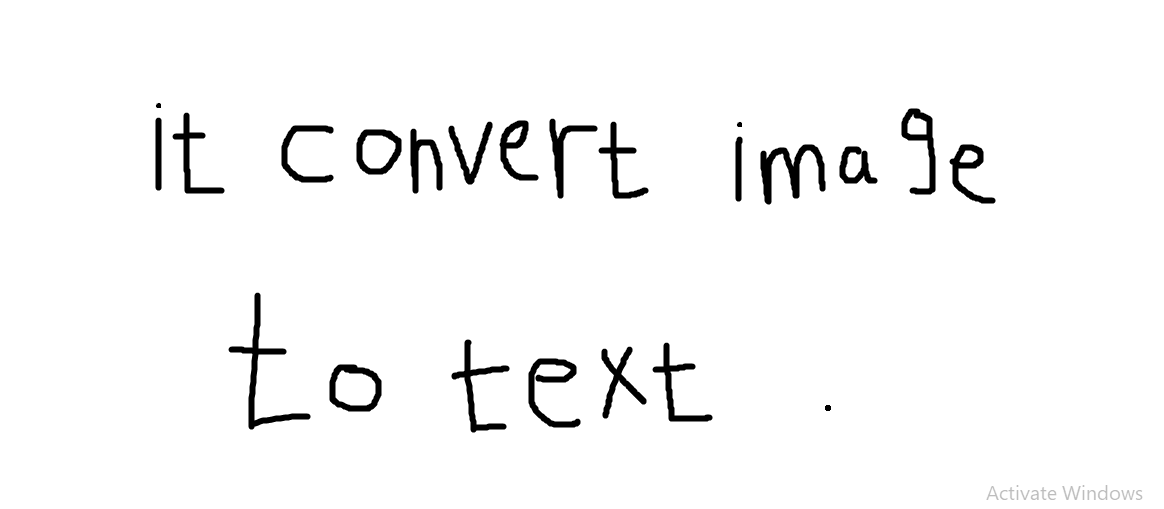 it convert image
to text .
Activate Windows